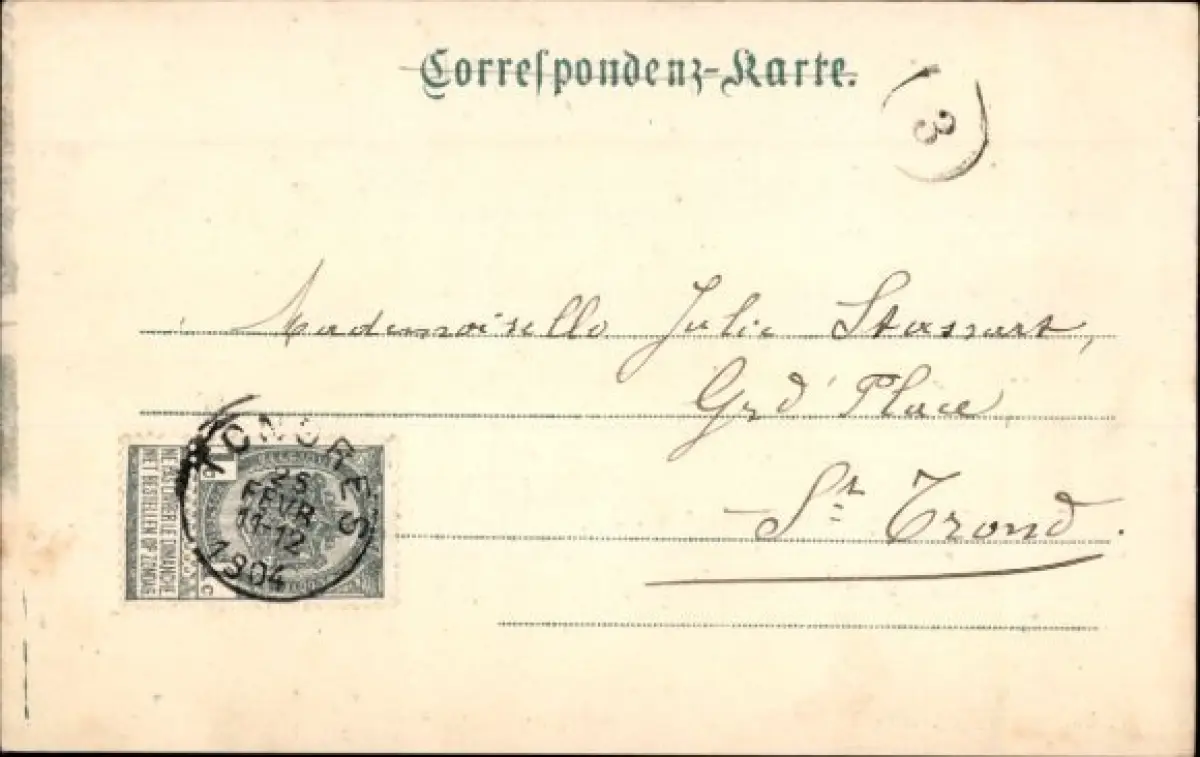 Correspondenz-Karte.
3
Mademoiselle Julie Stassart,
Grd' Place,
St Trond.
TONGRES
25
FEVR
11-12
1904
NE PAS LIVRER LE DIMANCHE
NIET BESTELLEN OP ZONDAG